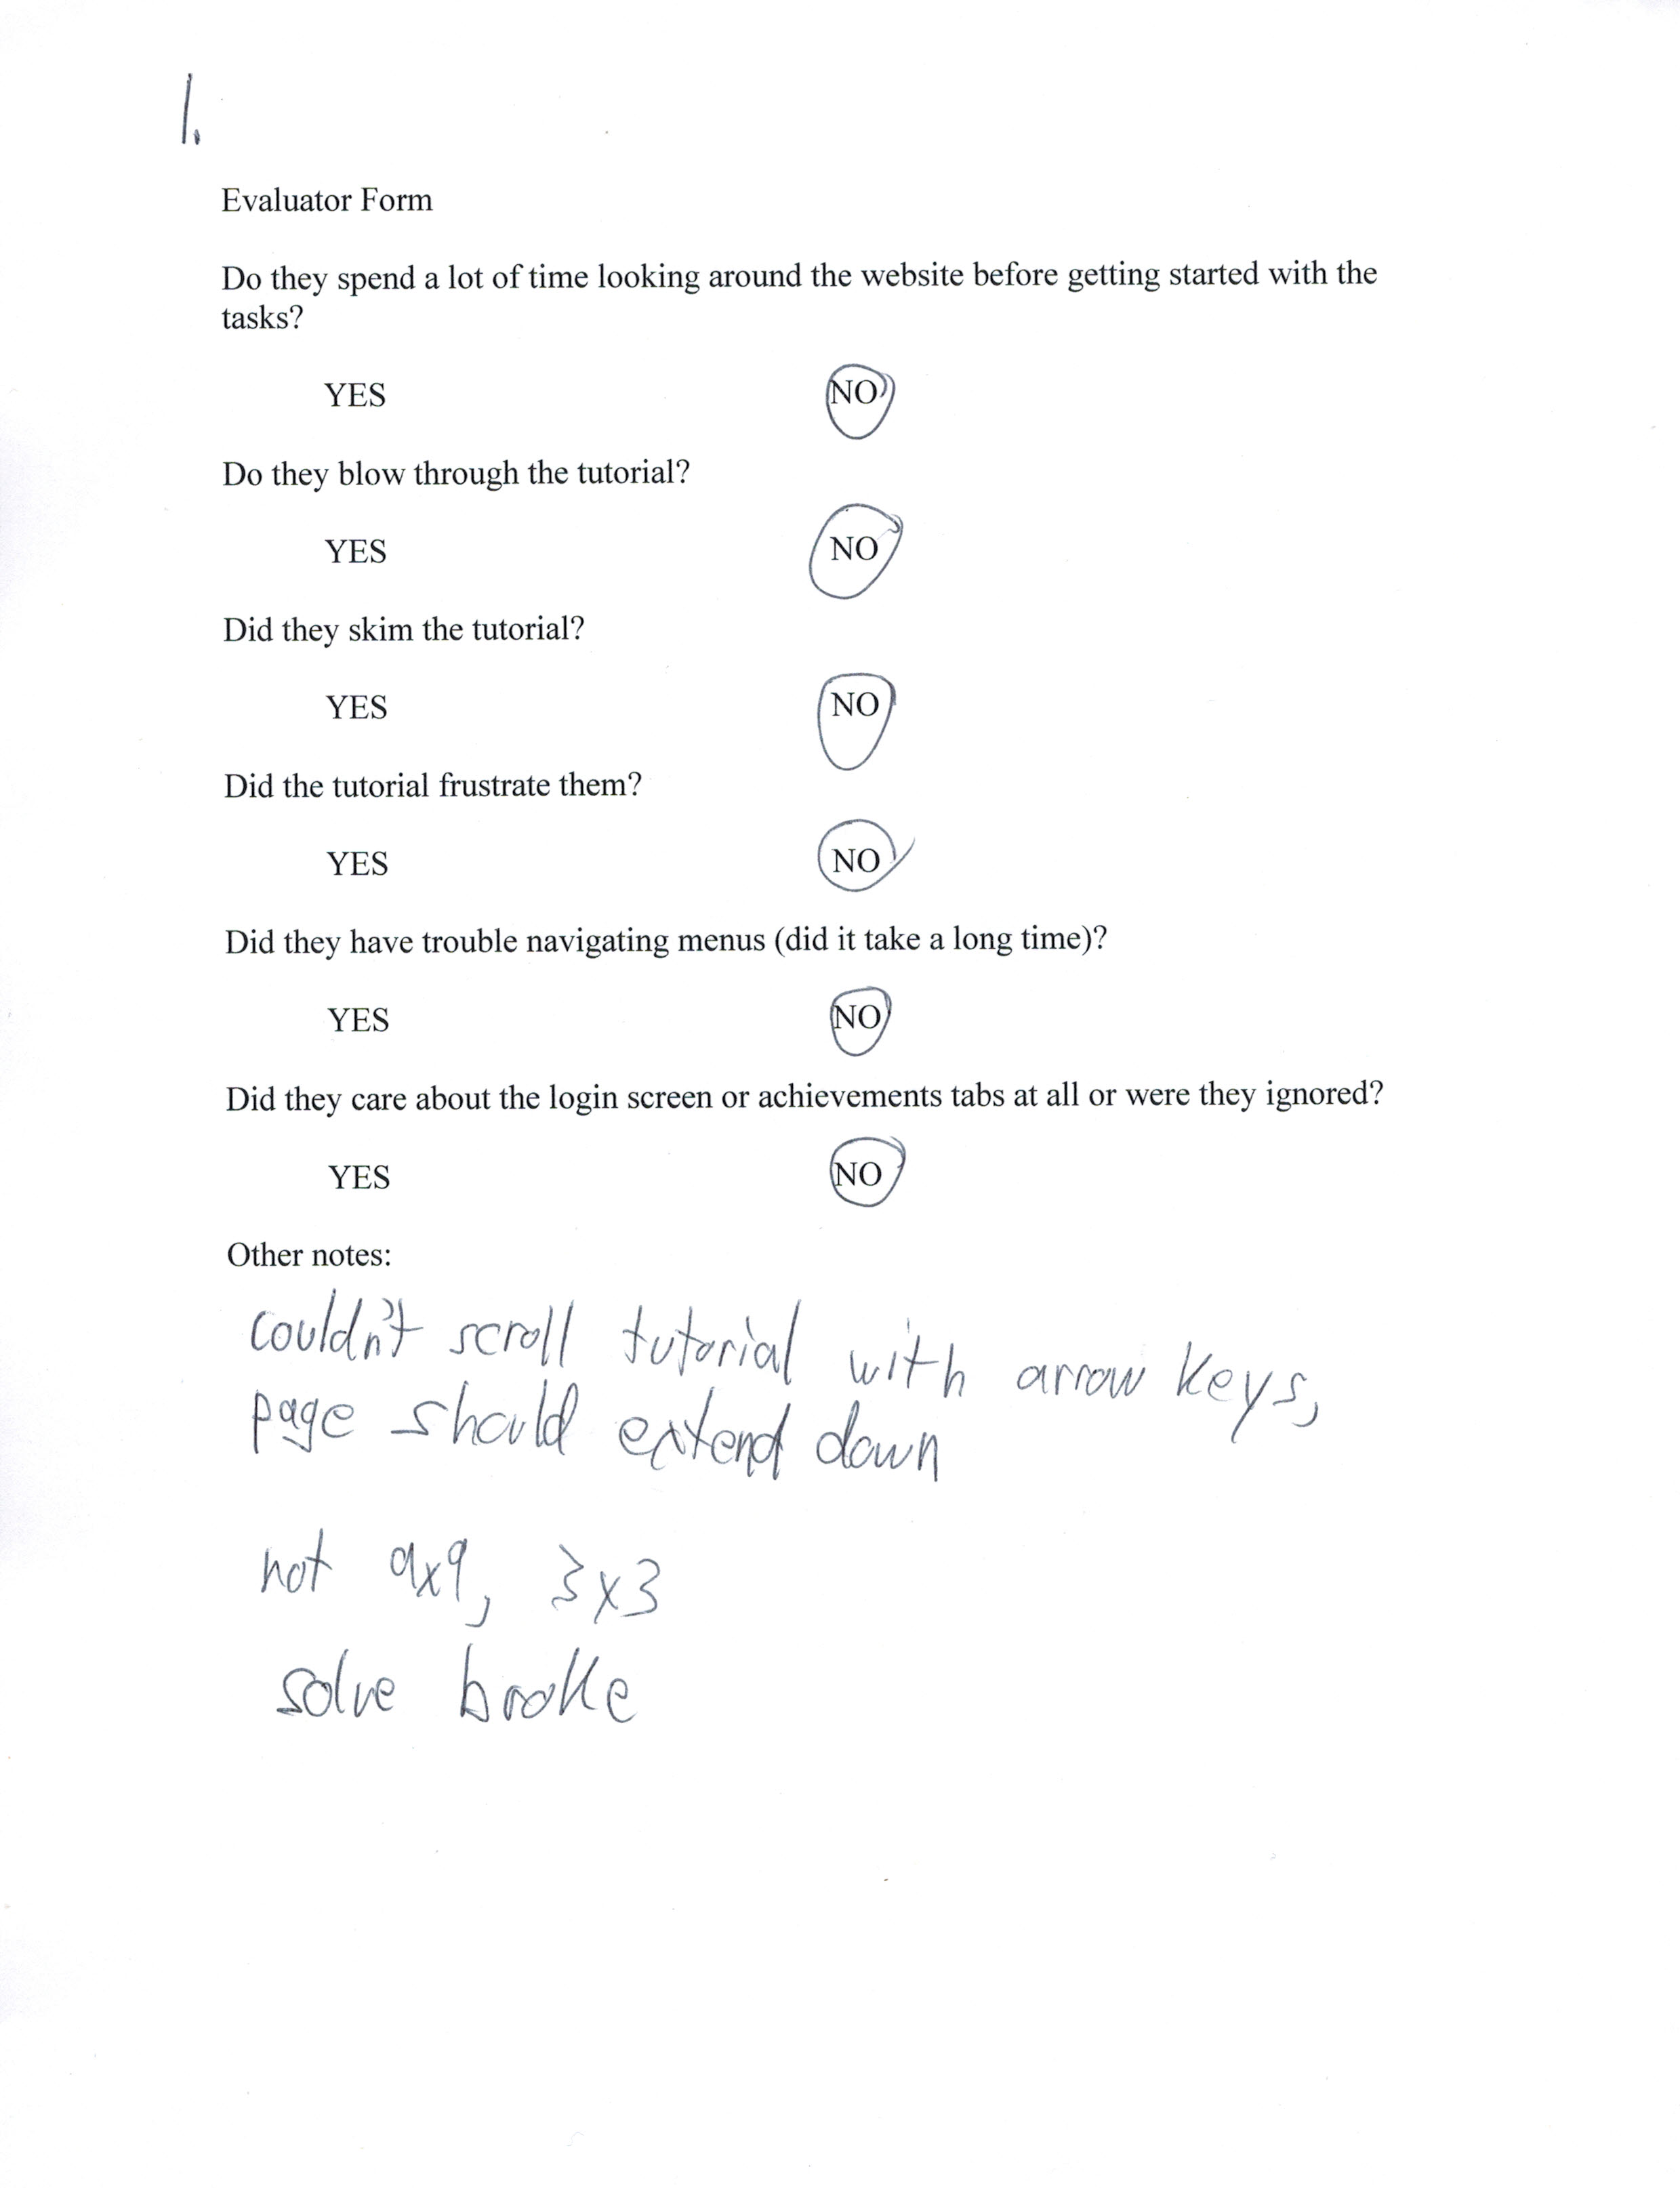 1.
Evaluator Form
Do they spend a lot of time looking around the website before getting started with the
tasks?
YES NO
Do they blow through the tutorial?
YES NO
Did they skim the tutorial?
YES NO
Did the tutorial frustrate them?
YES NO
Did they have trouble navigating menus (did it take a long time)?
YES NO
Did they care about the login screen or achievements tabs at all or were they ignored?
YES NO
Other notes:
couldn't scroll tutorial with arrow keys,
page should extend down
not 9x9, 3x3
solve broke